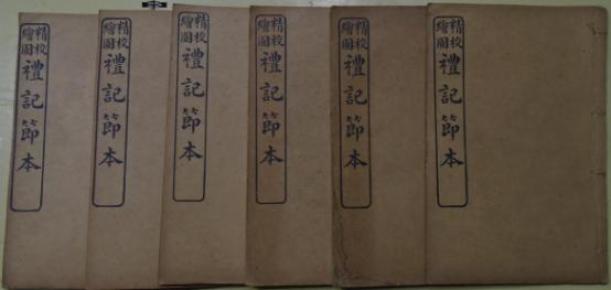 精校
繪圖
禮記節本
精校
繪圖
禮記節本
精校
繪圖
禮記節本
精校
繪圖
禮記節本
精校
繪圖
禮記節本
精校
繪圖
禮記節本